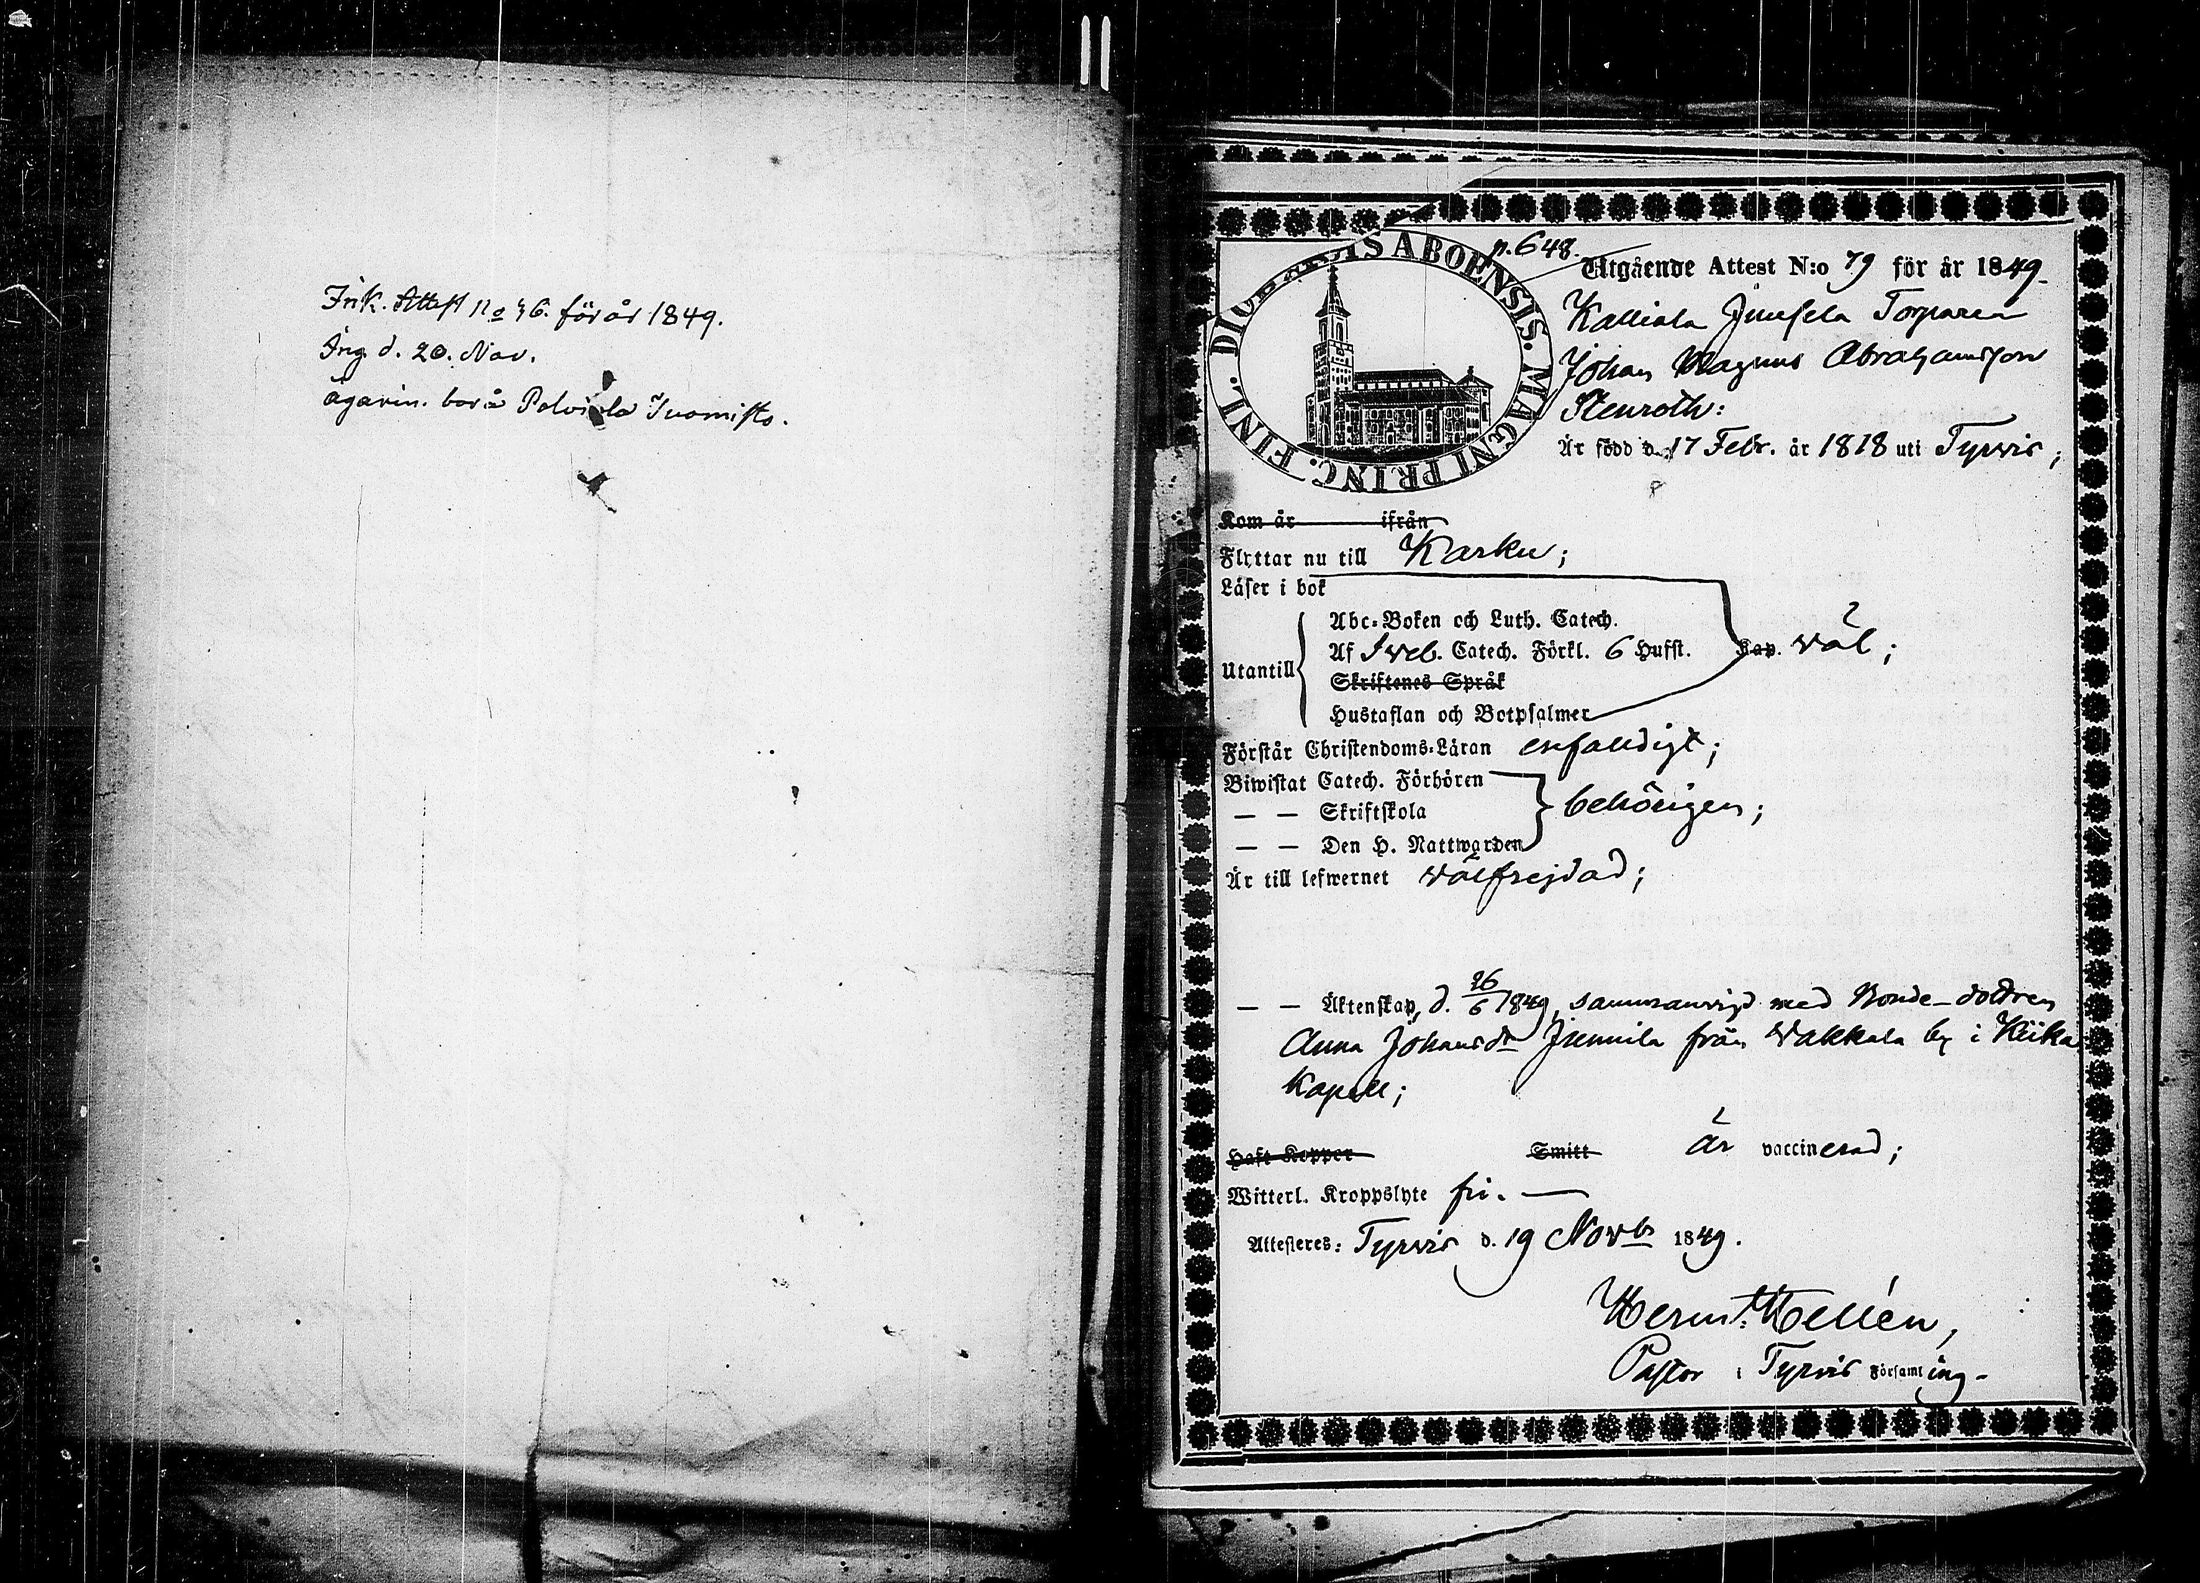 Ink. Attest No 46. för år 1849.
Ing. d. 20. Nov.
ägarin. bor å Suomisto.
p. 648.
DIOECESIS ABOENSIS. MAGNI PRINC. FINL.
Utgående Attest N:o 79 för år 1849.
Kalliala Torparen
Johan Magnus Abrahamsson
Stenroth:
Är född d. 17 Febr. år 1818 uti Tyrvis;
Kom år ifrån
Flyttar nu till Karku;
Läser i bok
Abc-Boken och Luth. Catech.
Utantill Af Sveb. Catech. Förkl. 6 Hufst. Kap. väl;
Skriftenes Språk
Hustaflan och Botpsalmer
Förstår Christendoms-Läran enfaldigt;
Biwistat Catech. Förhören
— — Skriftskola behörigen;
— — Den H. Nattwarden
Är till lefwernet välfrejdad;
— — Äktenskap, d. 26/6 1849, sammanvigd med Bonde-dottren
Anna Johansdr från Wakkala by i Kiika
Kapell;
Haft Koppor Smitt är vaccinerad;
Witterl. Kroppslyte fri. —
Attesteras: Tyrvis d. 19 Novbr 1849.
Herm. Hellén,
Pastor i Tyrvis Församling.